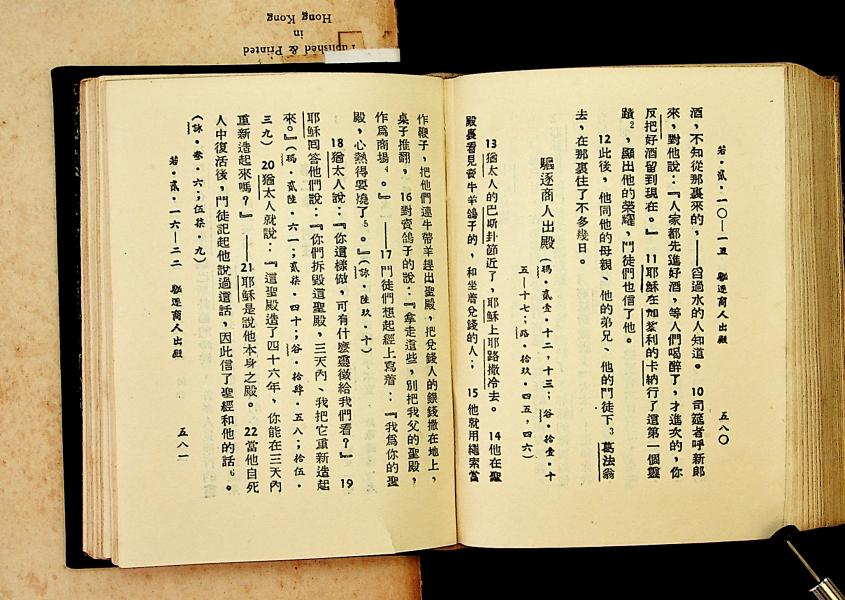 Published & Printed
in
Hong Kong
若．貳．一〇—一五　驅逐商人出殿　五八〇
酒，不知從那裏來的，——舀過水的人知道。　10司筵者呼新郎
來，對他說：『人家都先進好酒，等人們喝醉了，才進次的，你
反把好酒留到現在。』　11耶穌在加里利的卡納行了這第一個靈
蹟2，顯出他的榮耀，門徒們也信了他。
12此後，他同他的母親、他的弟兄、他的門徒下3葛法翁
去，在那裏住了不多幾日。
驅逐商人出殿（瑪．貳壹．十二，十三；谷．拾壹．十
五—十七；路．拾玖．四五，四六）
13猶太人的巴斯卦節近了，耶穌上耶路撒冷去。　14他在聖
殿裏看見賣牛羊鴿子的，和坐着兌錢的人；　15他就用繩索當
作鞭子，把他們連牛帶羊趕出聖殿，把兌錢人的銀錢撒在地上，
桌子推翻，　16對賣鴿子的說：『拿走這些，別把我父的聖殿，
作爲商場4。』　——17門徒們想起經上寫着：『我爲你的聖
殿，心熱得要燒了5。』（詠．陸玖．十）
18猶太人說：『你這樣做，可有什麼靈徵給我們看？』　19
耶穌回答他們說：『你們拆毀這聖殿，三天內、我把它重新造起
來。』（瑪．貳陸．六一；貳柒．四十；谷．拾肆．五八；拾伍．
三九）　20猶太人就說：『這聖殿造了四十六年，你能在三天內
重新造起來嗎？』　——21耶穌是說他本身之殿。　22當他自死
人中復活後，門徒記起他說過這話，因此信了聖經和他的話6。
（詠．叁．六；伍柒．九）
若．貳．一六—二二　驅逐商人出殿　五八一